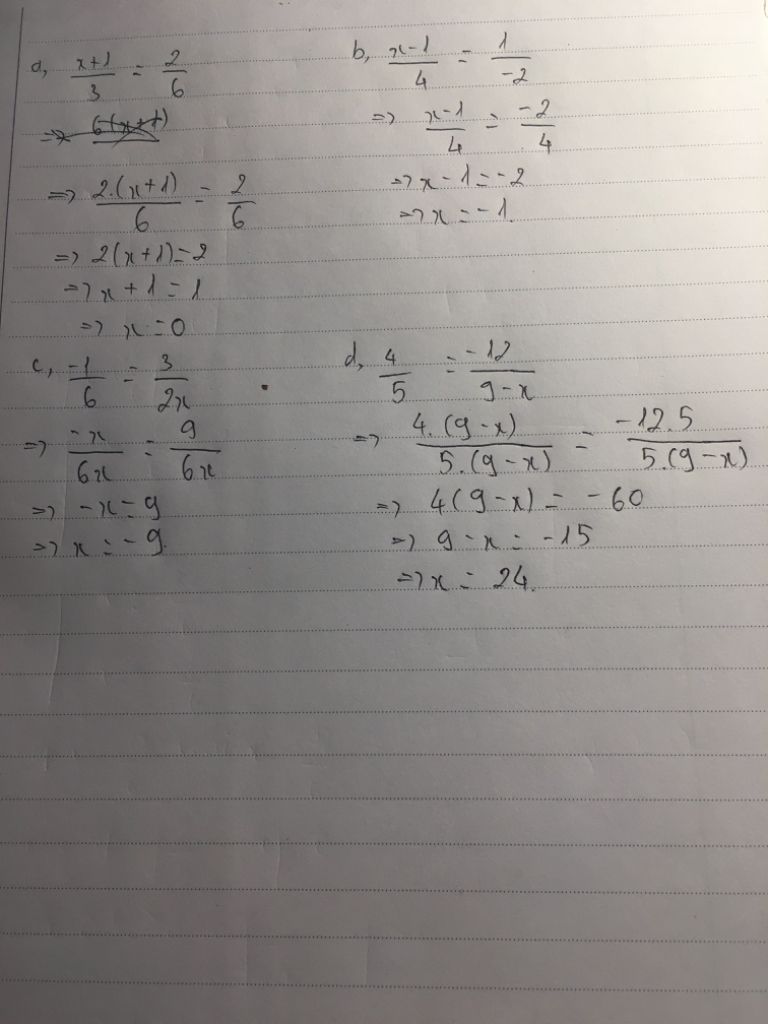 a, (x+1)/3 = 2/6
=> 6(x+1)
=> 2.(x+1)/6 = 2/6
=> 2(x+1)=2
=> x + 1 = 1
=> x = 0
b, (x-1)/4 = 1/-2
=> (x-1)/4 = -2/4
=> x - 1 = -2
=> x = -1.
c, -1/6 = 3/2x
=> -x/6x = 9/6x
=> -x = 9
=> x = -9.
d, 4/5 = -12/(9-x)
=> 4.(9-x)/5.(9-x) = -12.5/5.(9-x)
=> 4(9-x) = -60
=> 9-x = -15
=> x = 24.